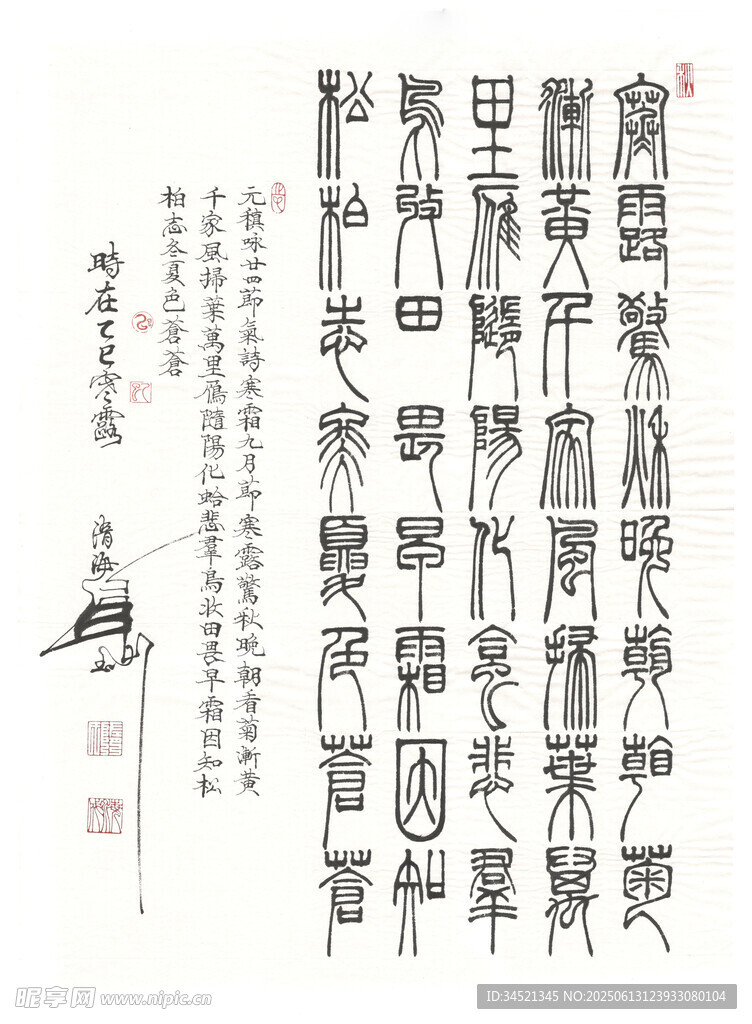 寒露驚秋晚朝看菊
漸黃千家風掃葉萬
里雁隨陽化蛤悲羣
鳥收田畏早霜因知
松柏志冬夏色蒼蒼
元稹咏廿四節氣詩寒霜九月節寒露驚秋晚朝看菊漸黃
千家風掃葉萬里鴈隨陽化蛤悲羣鳥收田畏早霜因知松
柏志冬夏色蒼蒼
時在乙巳寒露
昵享网 www.nipic.cn
ID:34521345 NO:20250613123933080104